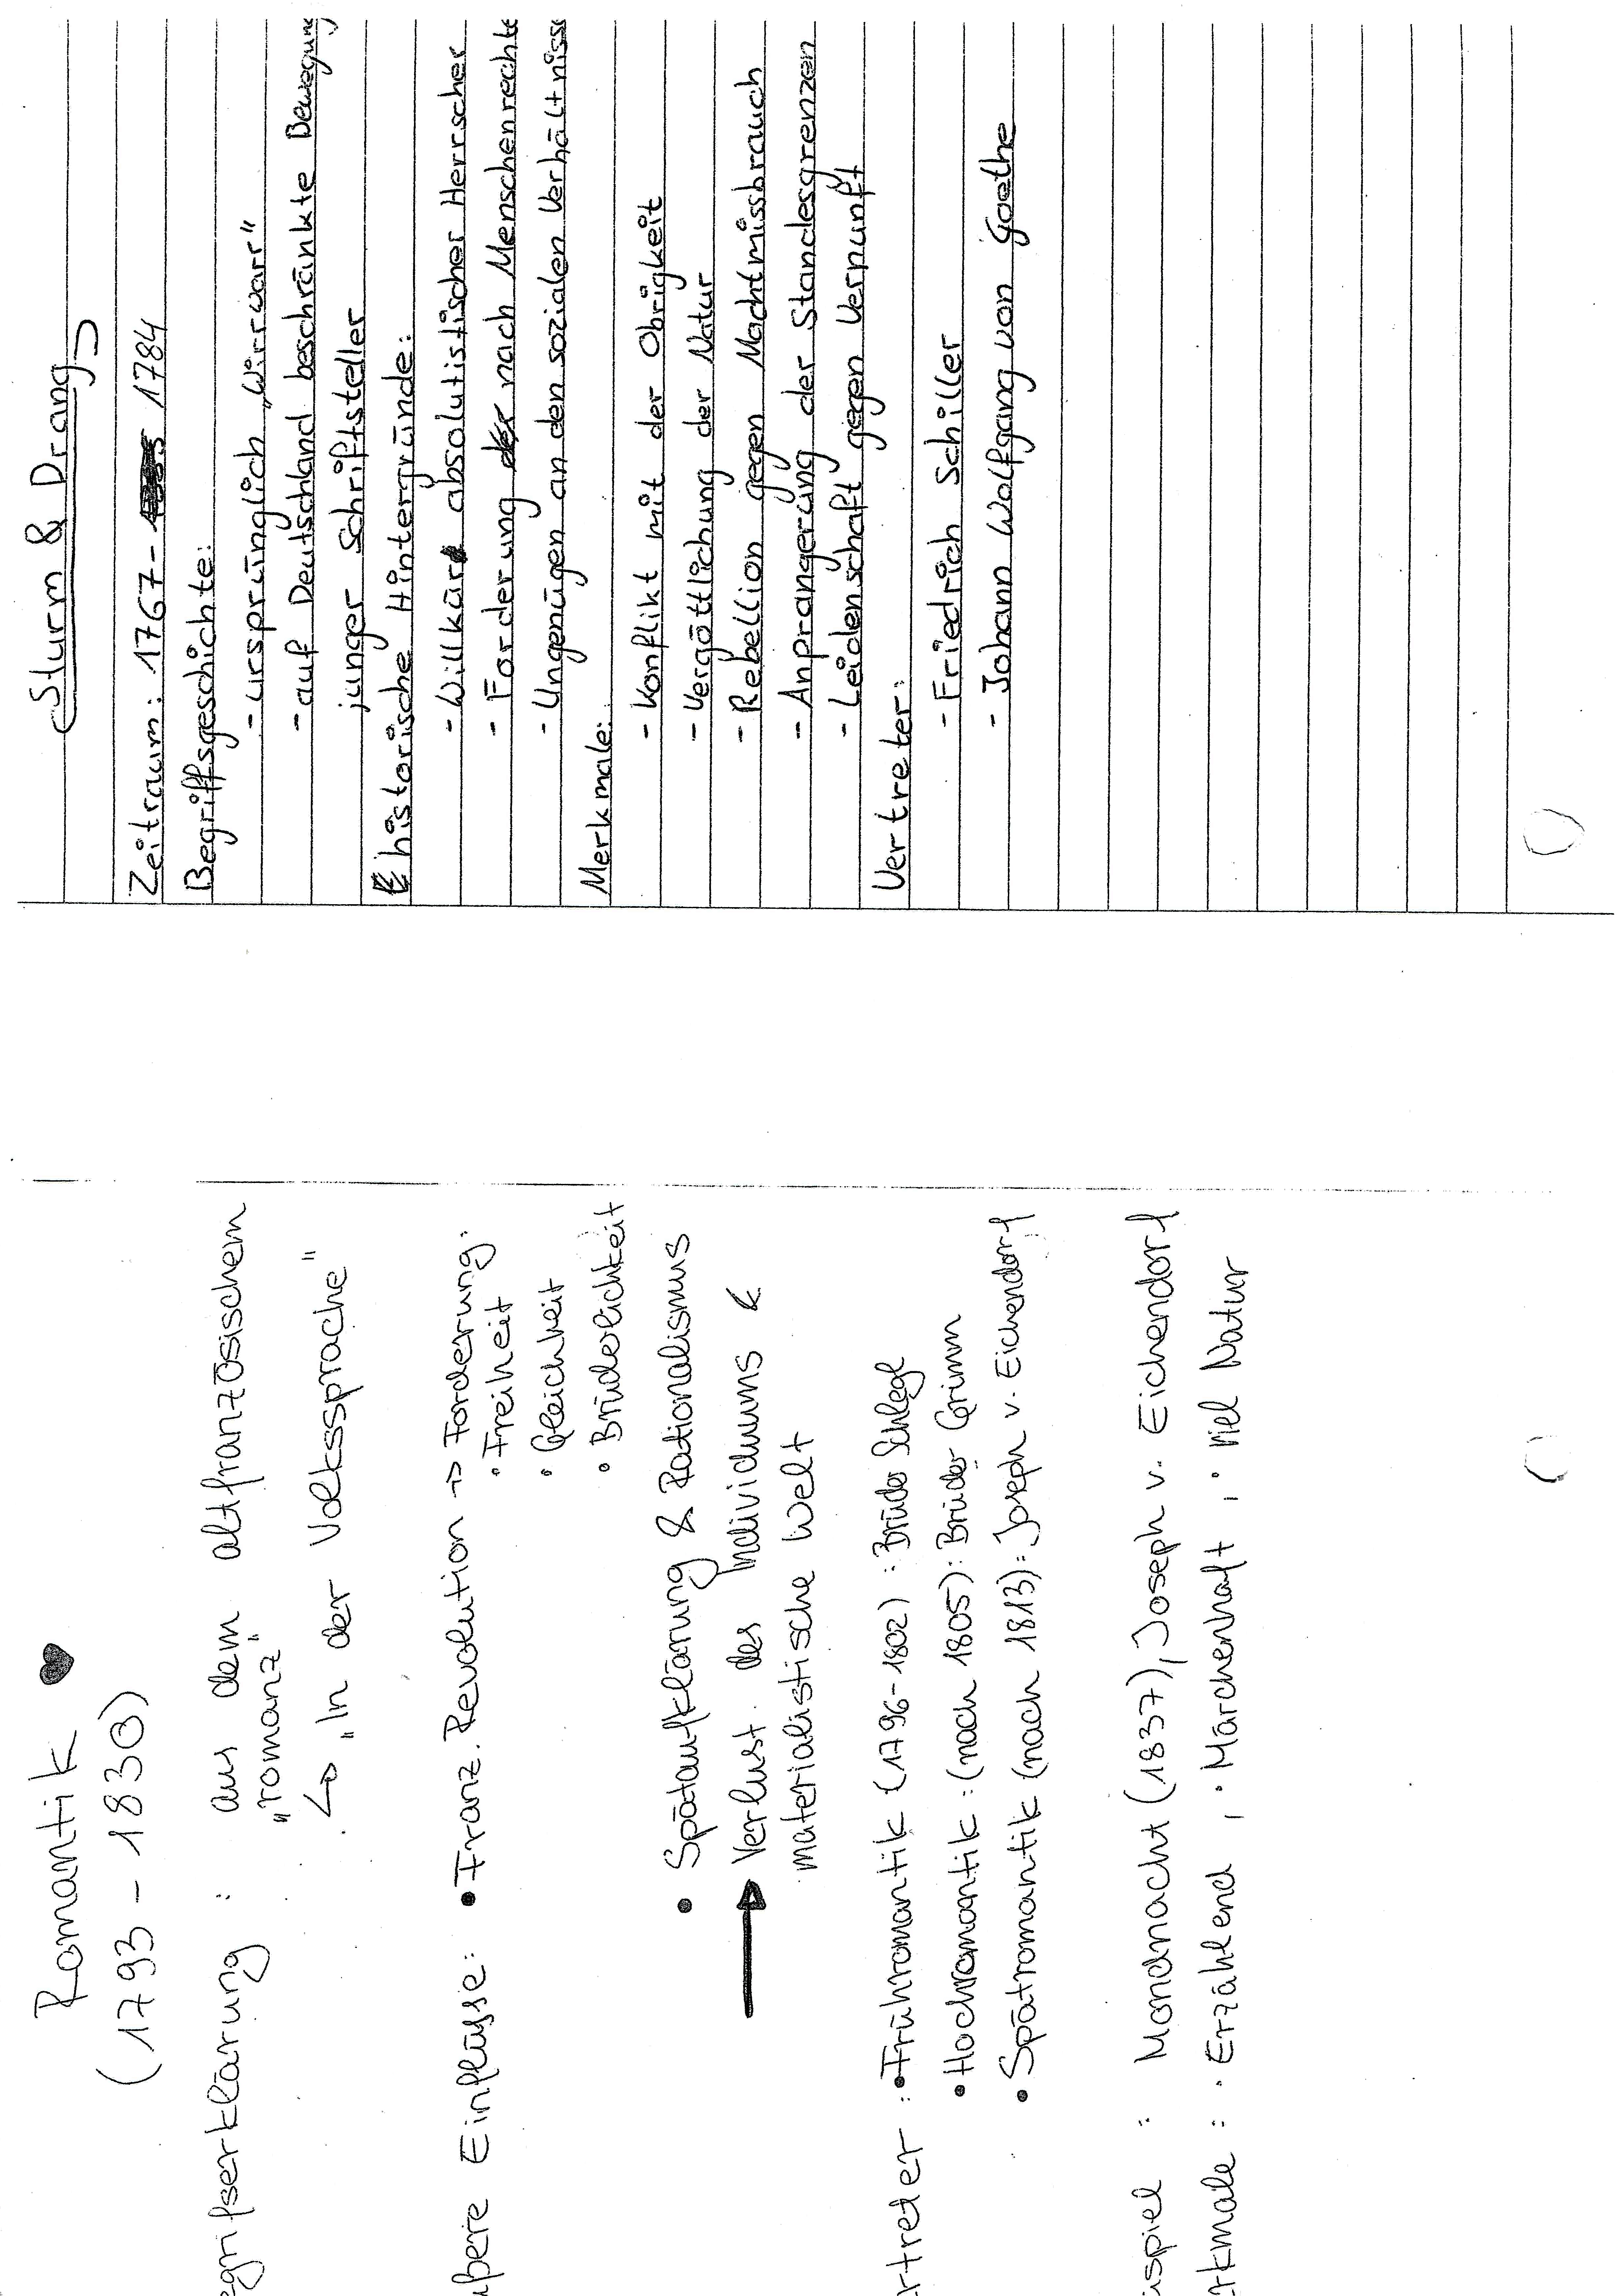 Romantik
(1793 - 1830)
egrifserklärung : aus dem altfranzösischem
"romanz"
↳ „In der Volkssprache"
ußere Einflüsse: • Franz. Revolution -> Forderung:
• Freiheit
• Gleichheit
• Brüderlichkeit
• Spätaufklärung & Rationalismus
→ Verlust des Individuums &
materialistische Welt
rtreter : • Frühromantik (1796-1802) : Brüder Schlegl
• Hochromantik : (nach 1805) : Brüder Grimm
• Spätromantik (nach 1813) : Joseph v. Eichendorf
ispiel : Mondnacht (1837), Joseph v. Eichendorf
rkmale : • Erzählend , • Märchenhaft , • viel Natur
Sturm & Drang
Zeitraum: 1767- 1784
Begriffsgeschichte:
- ursprünglich „Wirrwarr"
- auf Deutschland beschränkte Bewegung
junger Schriftsteller
historische Hintergründe:
- Willkür absolutistischer Herrscher
- Forderung nach Menschenrechte
- Ungenügen an den sozialen Verhältniss
Merkmale:
- Konflikt mit der Obrigkeit
- Vergöttlichung der Natur
- Rebellion gegen Machtmissbrauch
- Anprangerung der Standesgrenzen
- Leidenschaft gegen Vernunft
Vertreter:
- Friedrich Schiller
- Johann Wolfgang von Goethe